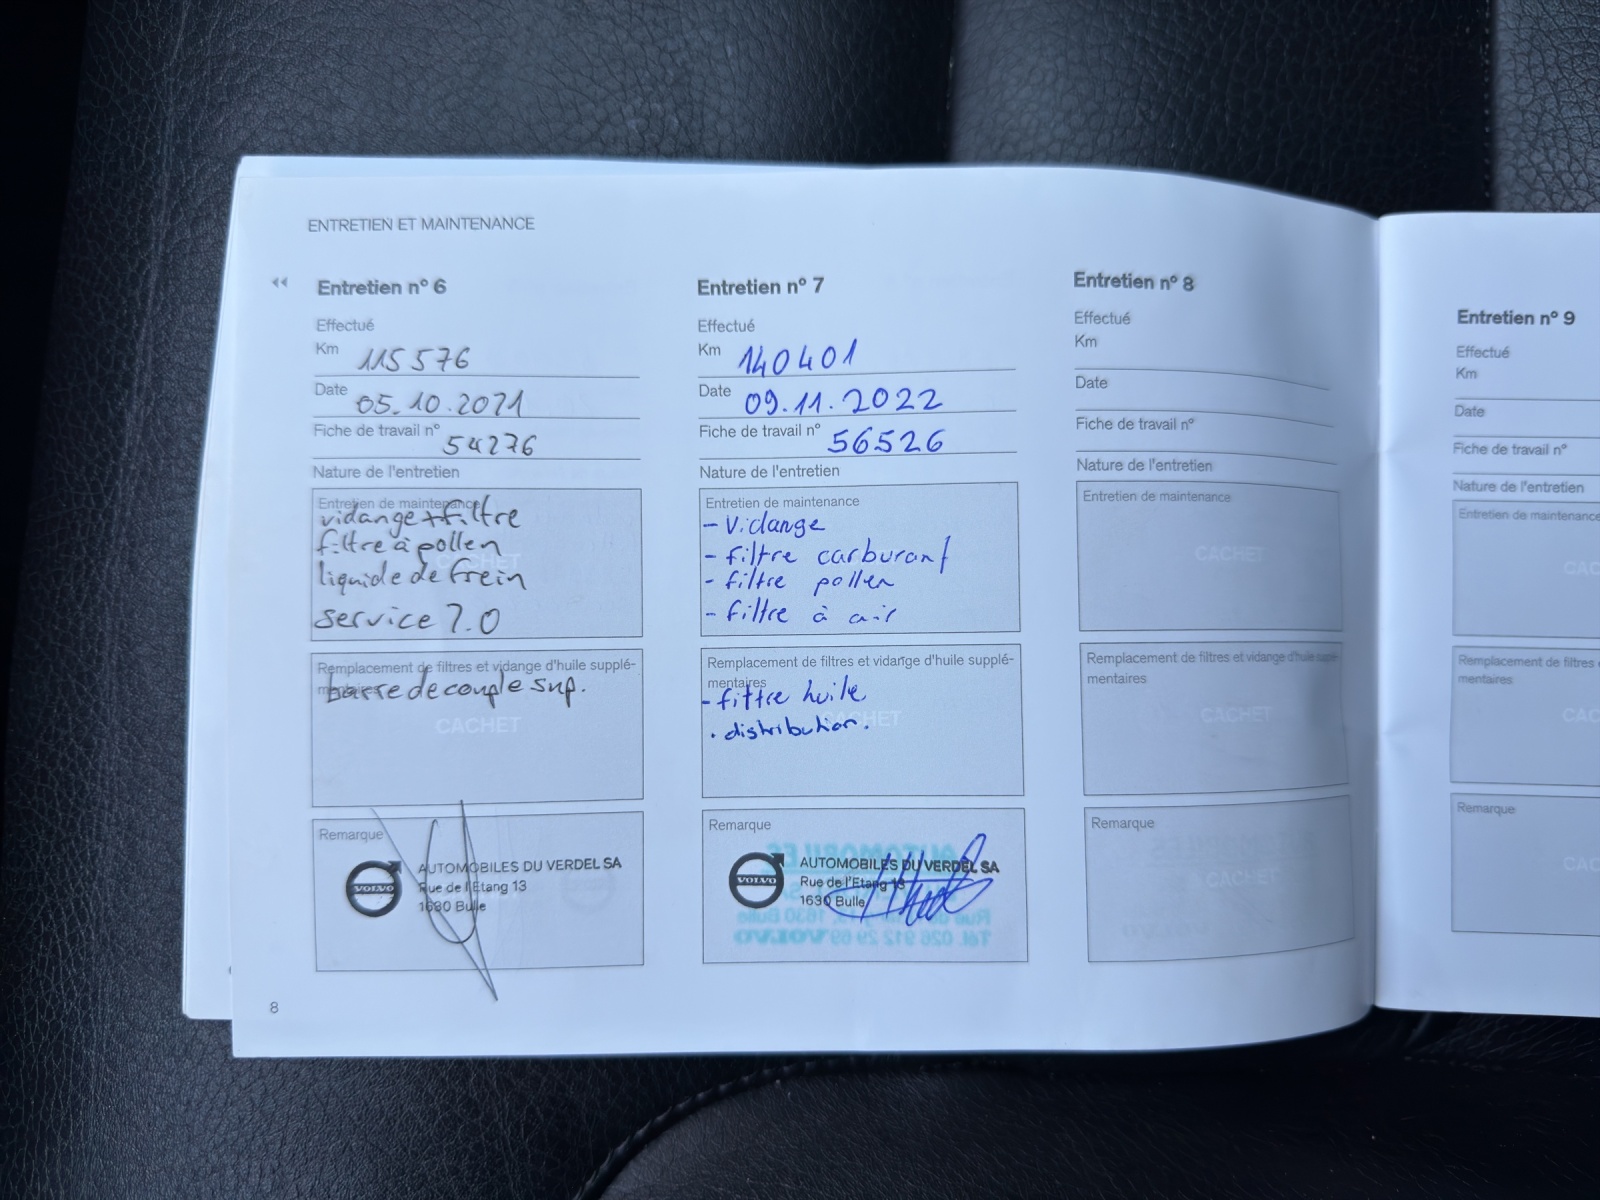 ENTRETIEN ET MAINTENANCE
Entretien nº 6
Effectué
Km 115576
Date 05.10.2021
Fiche de travail nº 54276
Nature de l'entretien
Entretien de maintenance
vidange + filtre
filtre à pollen
CACHET
liquide de frein
service 7.0
Remplacement de filtres et vidange d'huile supplé-
mentaires
barre de couple sup.
CACHET
Remarque
AUTOMOBILES DU VERDEL SA
VOLVO
Rue de l'Etang 13
1630 Bulle
8
Entretien nº 7
Effectué
Km 140401
Date 09.11.2022
Fiche de travail nº 56526
Nature de l'entretien
Entretien de maintenance
- Vidange
- filtre carburant
- filtre pollen
- filtre à air
Remplacement de filtres et vidange d'huile supplé-
mentaires
- filtre huile
CACHET
. distribution.
Remarque
AUTOMOBILES DU VERDEL SA
VOLVO
Rue de l'Etang 13
1630 Bulle
Rue de l'Etang 13, 1630 Bulle
Tél. 026 912 29 69 VOLVO
Entretien nº 8
Effectué
Km
Date
Fiche de travail nº
Nature de l'entretien
Entretien de maintenance
CACHET
Remplacement de filtres et vidange d'huile supplé-
mentaires
CACHET
Remarque
CACHET
Entretien nº 9
Effectué
Km
Date
Fiche de travail nº
Nature de l'entretien
Entretien de maintenance
CAC
Remplacement de filtres
mentaires
CAC
Remarque
CAC